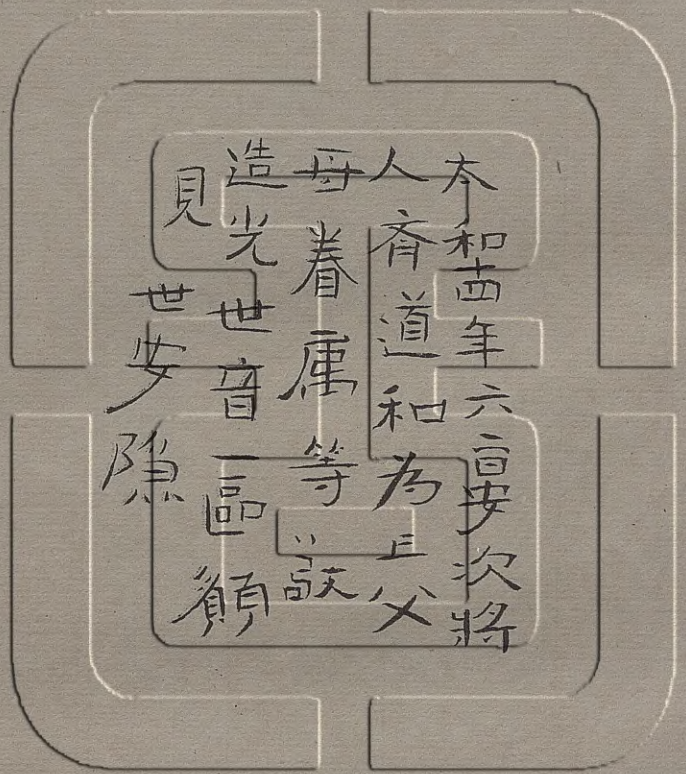 太和十四年六安次將
人齊道和為亡父
母眷属等敬
造光世音一區願
見世安隐